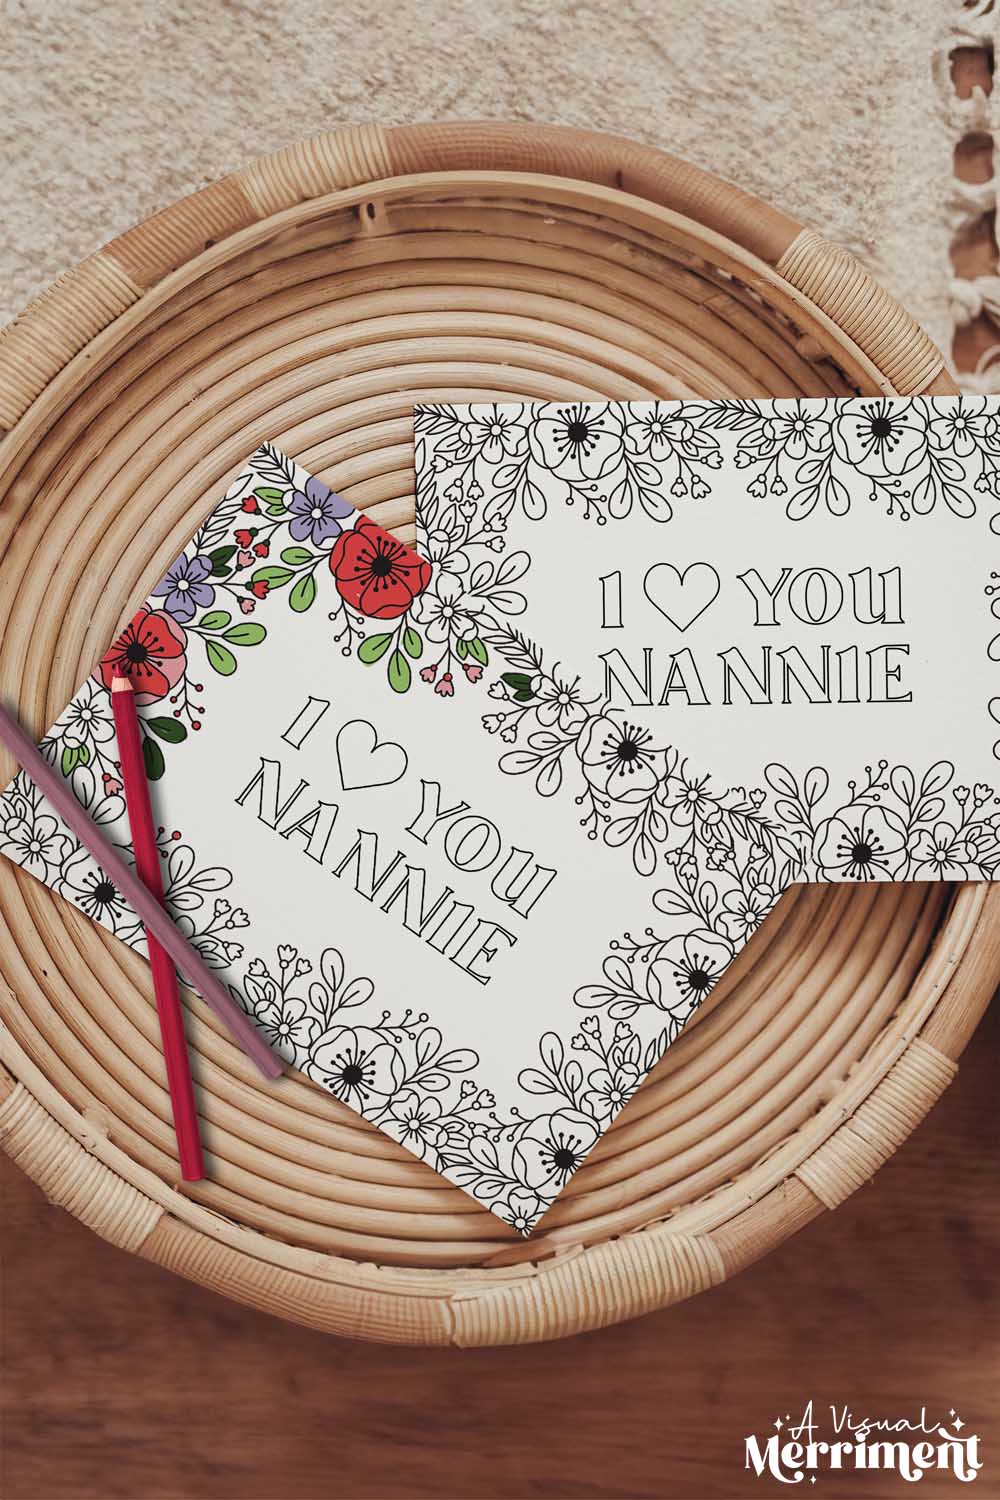 I ♡ YOU
NANNIE
I ♡ YOU
NANNIE
A Visual
Merriment